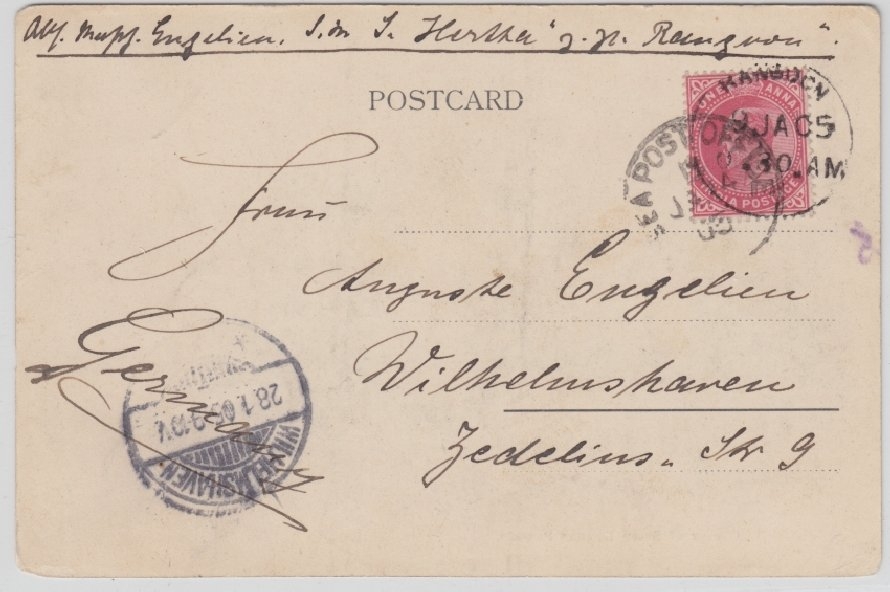 Abs. Engelien. S. M. S. "Hertha" z. Zt. Rangoon".
POSTCARD
ONE ANNA
INDIA POSTAGE
RANGOON
JA 05
.30.AM
SEA POST OFFICE
Frau
Auguste Engelien
Wilhelmshaven
Zedelius-Str 9
Germany
WILHELMSHAVEN
28.1.05.9-10V.